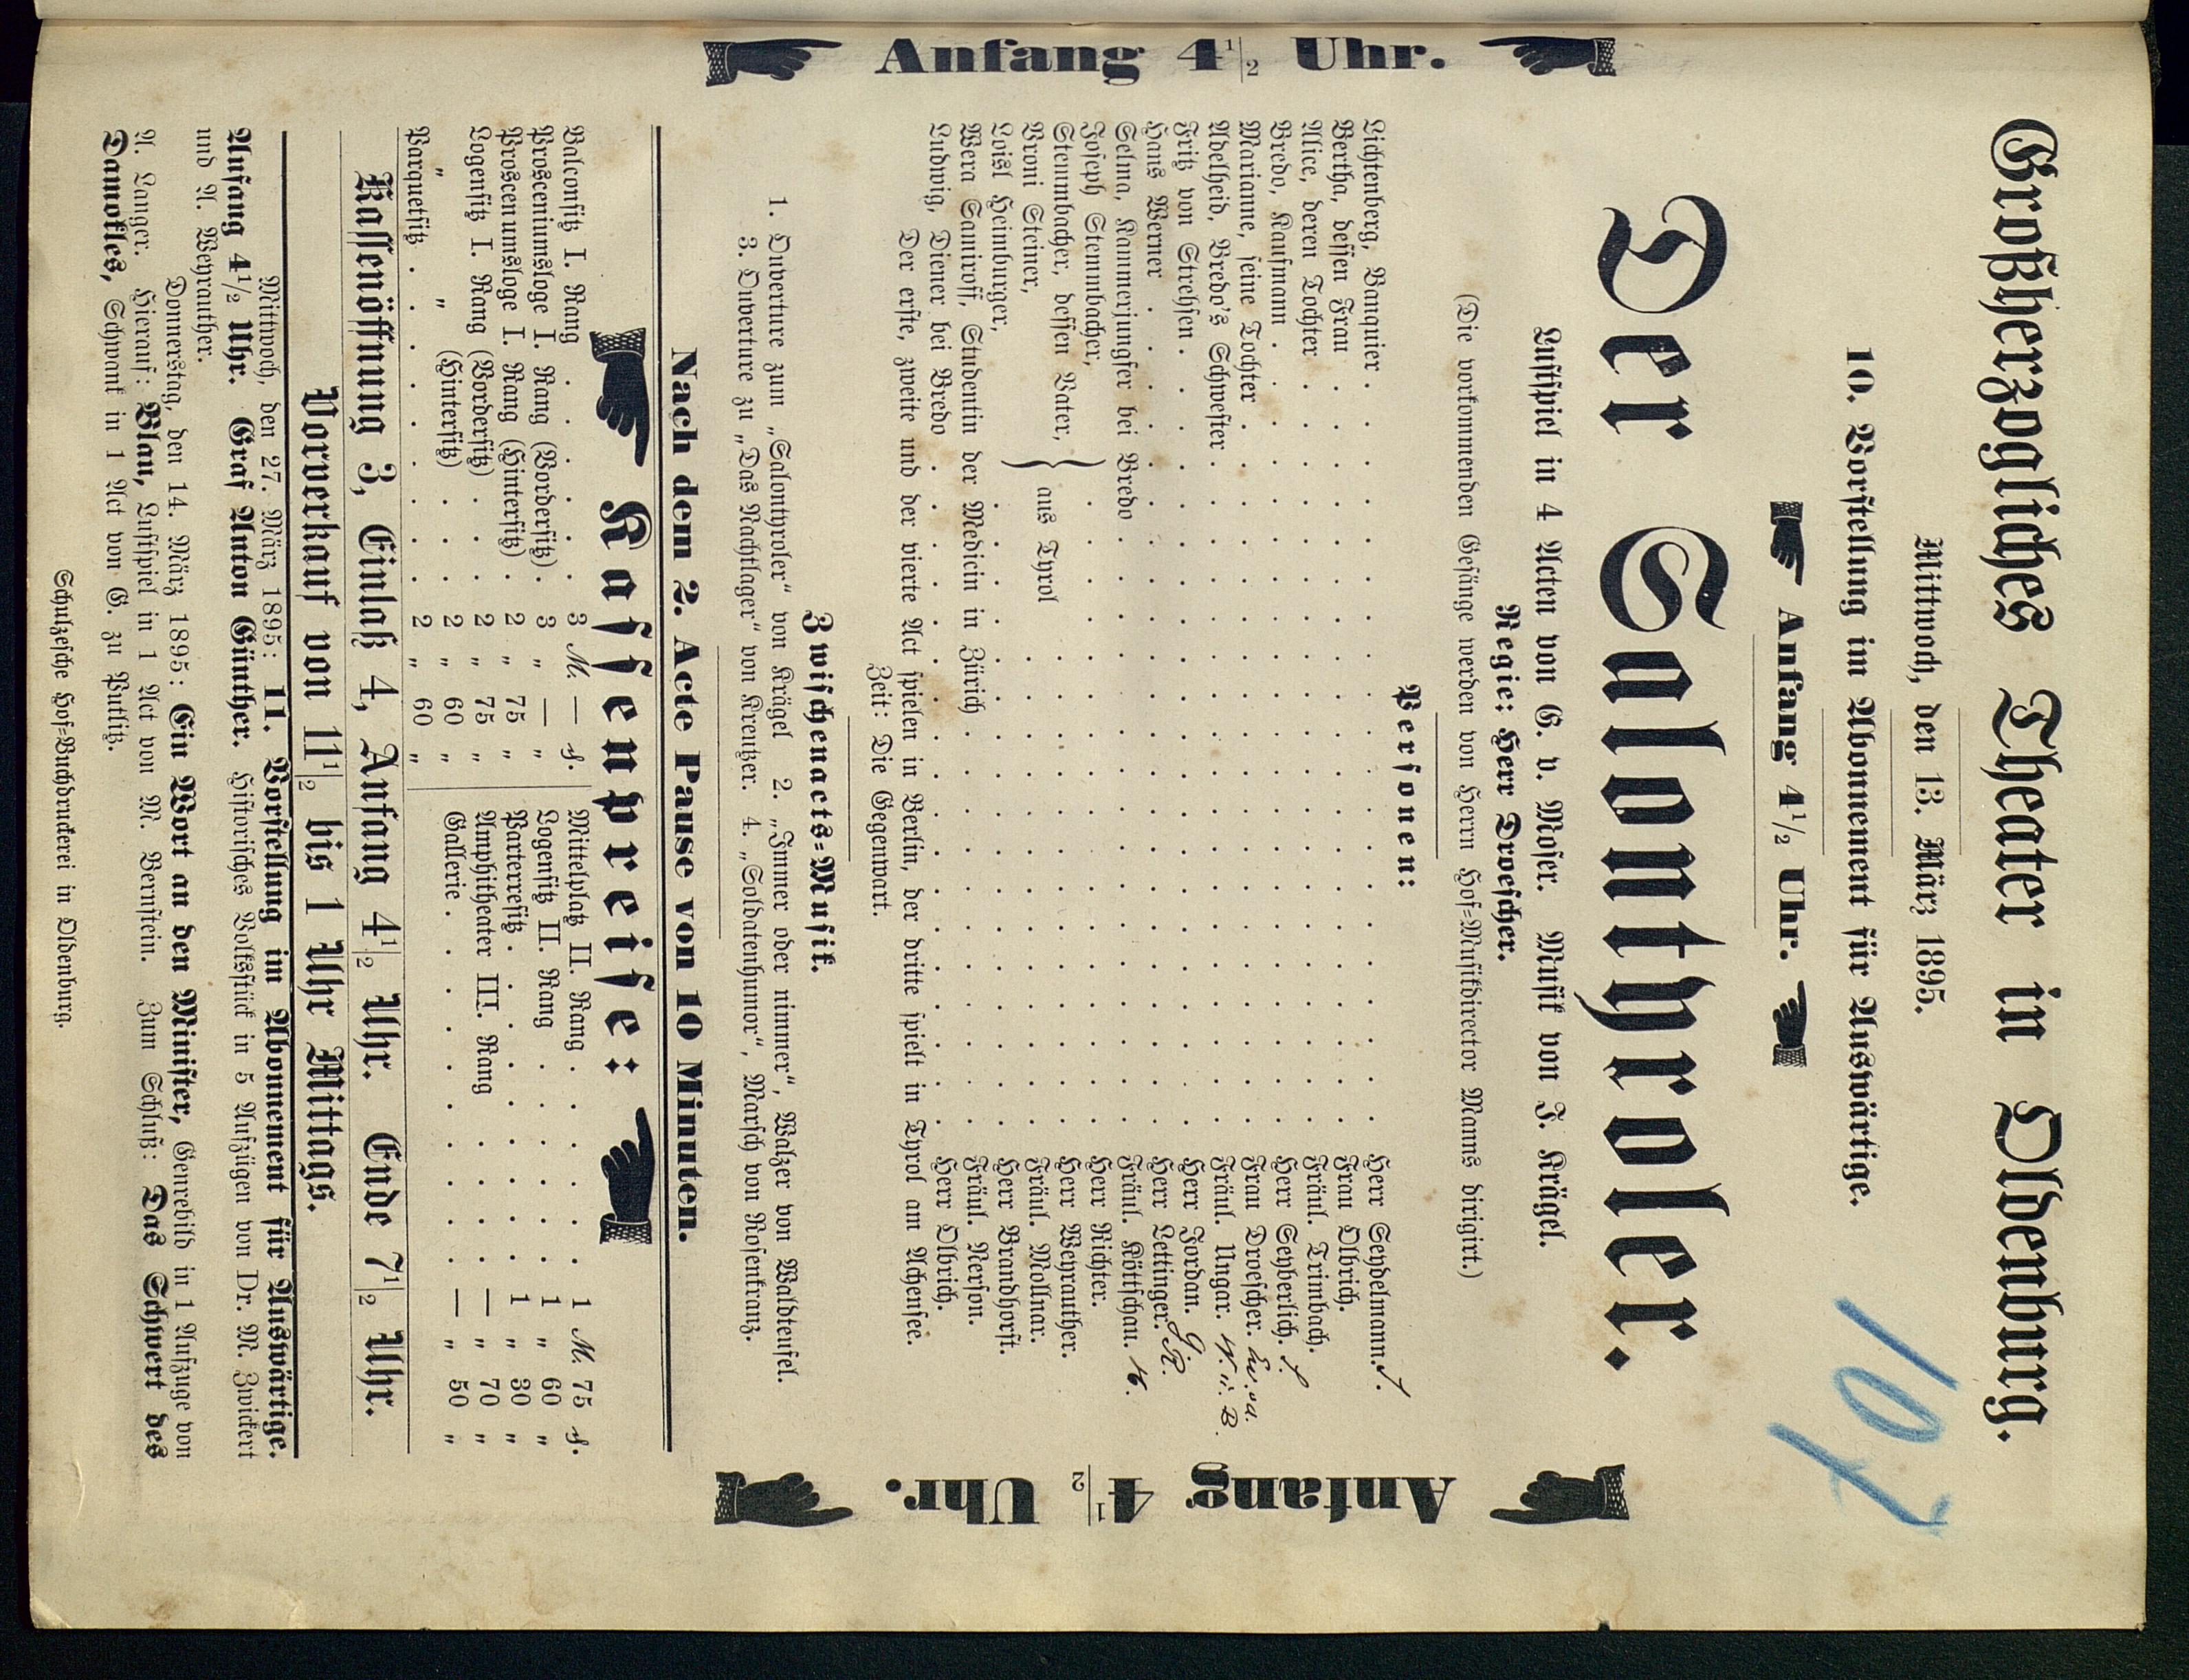 Großherzogliches Theater in Oldenburg.
Mittwoch, den 13. März 1895.
10. Vorstellung im Abonnement für Auswärtige.
Anfang 4½ Uhr.
107
Der Salontyroler.
Lustspiel in 4 Acten von G. v. Moser. Musik von J. Krägel.
Regie: Herr Droescher.
(Die vorkommenden Gesänge werden von Herrn Hof-Musikdirector Manns dirigirt.)
Personen:
Lichtenberg, Banquier . . . Herr Seydelmann.
Bertha, dessen Frau . . . Frau Olbrich.
Alice, deren Tochter . . . Fräul. Trimbach.
Bredo, Kaufmann . . . Herr Seyberlich.
Marianne, seine Tochter . . . Frau Droescher.
Adelheid, Bredo's Schwester . . . Fräul. Ungar.
Fritz von Strehsen . . . Herr Jordan.
Hans Werner . . . Herr Lettinger.
Selma, Kammerjungfer bei Bredo . . . Fräul. Köttschau.
Joseph Stemmbacher, . . . Herr Richter.
Stemmbacher, dessen Vater, . . . Herr Weyrauther.
Vroni Steiner, aus Tyrol . . . Fräul. Mollnar.
Loisl Heimburger, . . . Herr Brandhorst.
Wera Samiroff, Studentin der Medicin in Zürich . . . Fräul. Nerson.
Ludwig, Diener bei Bredo . . . Herr Olbrich.
Der erste, zweite und der vierte Act spielen in Berlin, der dritte spielt in Tyrol am Achensee.
Zeit: Die Gegenwart.
Zwischenacts-Musik.
1. Ouverture zum „Salontyroler“ von Krägel 2. „Immer oder nimmer“, Walzer von Waldteufel.
3. Ouverture zu „Das Nachtlager“ von Kreutzer. 4. „Soldatenhumor“, Marsch von Rosenkranz.
Nach dem 2. Acte Pause von 10 Minuten.
Kassenpreise:
Balconsitz I. Rang . . . 3 M. — ₰.
Prosceniumsloge I. Rang (Vordersitz) . 3 „ — „
Prosceniumsloge I. Rang (Hintersitz) . 2 „ 75 „
Logensitz I. Rang (Vordersitz) . . . 2 „ 75 „
„ „ (Hintersitz) . . . 2 „ 60 „
Parquetsitz . . . 2 „ 60 „
Mittelplatz II. Rang . . . 1 M. 75 ₰.
Logensitz II. Rang . . . 1 „ 60 „
Parterresitz . . . 1 „ 30 „
Amphitheater III. Rang . . . — „ 70 „
Gallerie . . . — „ 50 „
Kassenöffnung 3, Einlaß 4, Anfang 4½ Uhr. Ende 7½ Uhr.
Vorverkauf von 11½ bis 1 Uhr Mittags.
Mittwoch, den 27. März 1895: 11. Vorstellung im Abonnement für Auswärtige.
Anfang 4½ Uhr. Graf Anton Günther. Historisches Volksstück in 5 Aufzügen von Dr. M. Zwickert
und A. Weyrauther.
Donnerstag, den 14. März 1895: Ein Wort an den Minister, Genrebild in 1 Aufzuge von
A. Langer. Hierauf: Blau, Lustspiel in 1 Act von M. Bernstein. Zum Schluß: Das Schwert des
Damokles, Schwank in 1 Act von G. zu Putlitz.
Schulzesche Hof-Buchdruckerei in Oldenburg.
Anfang 4½ Uhr.
Anfang 4½ Uhr.